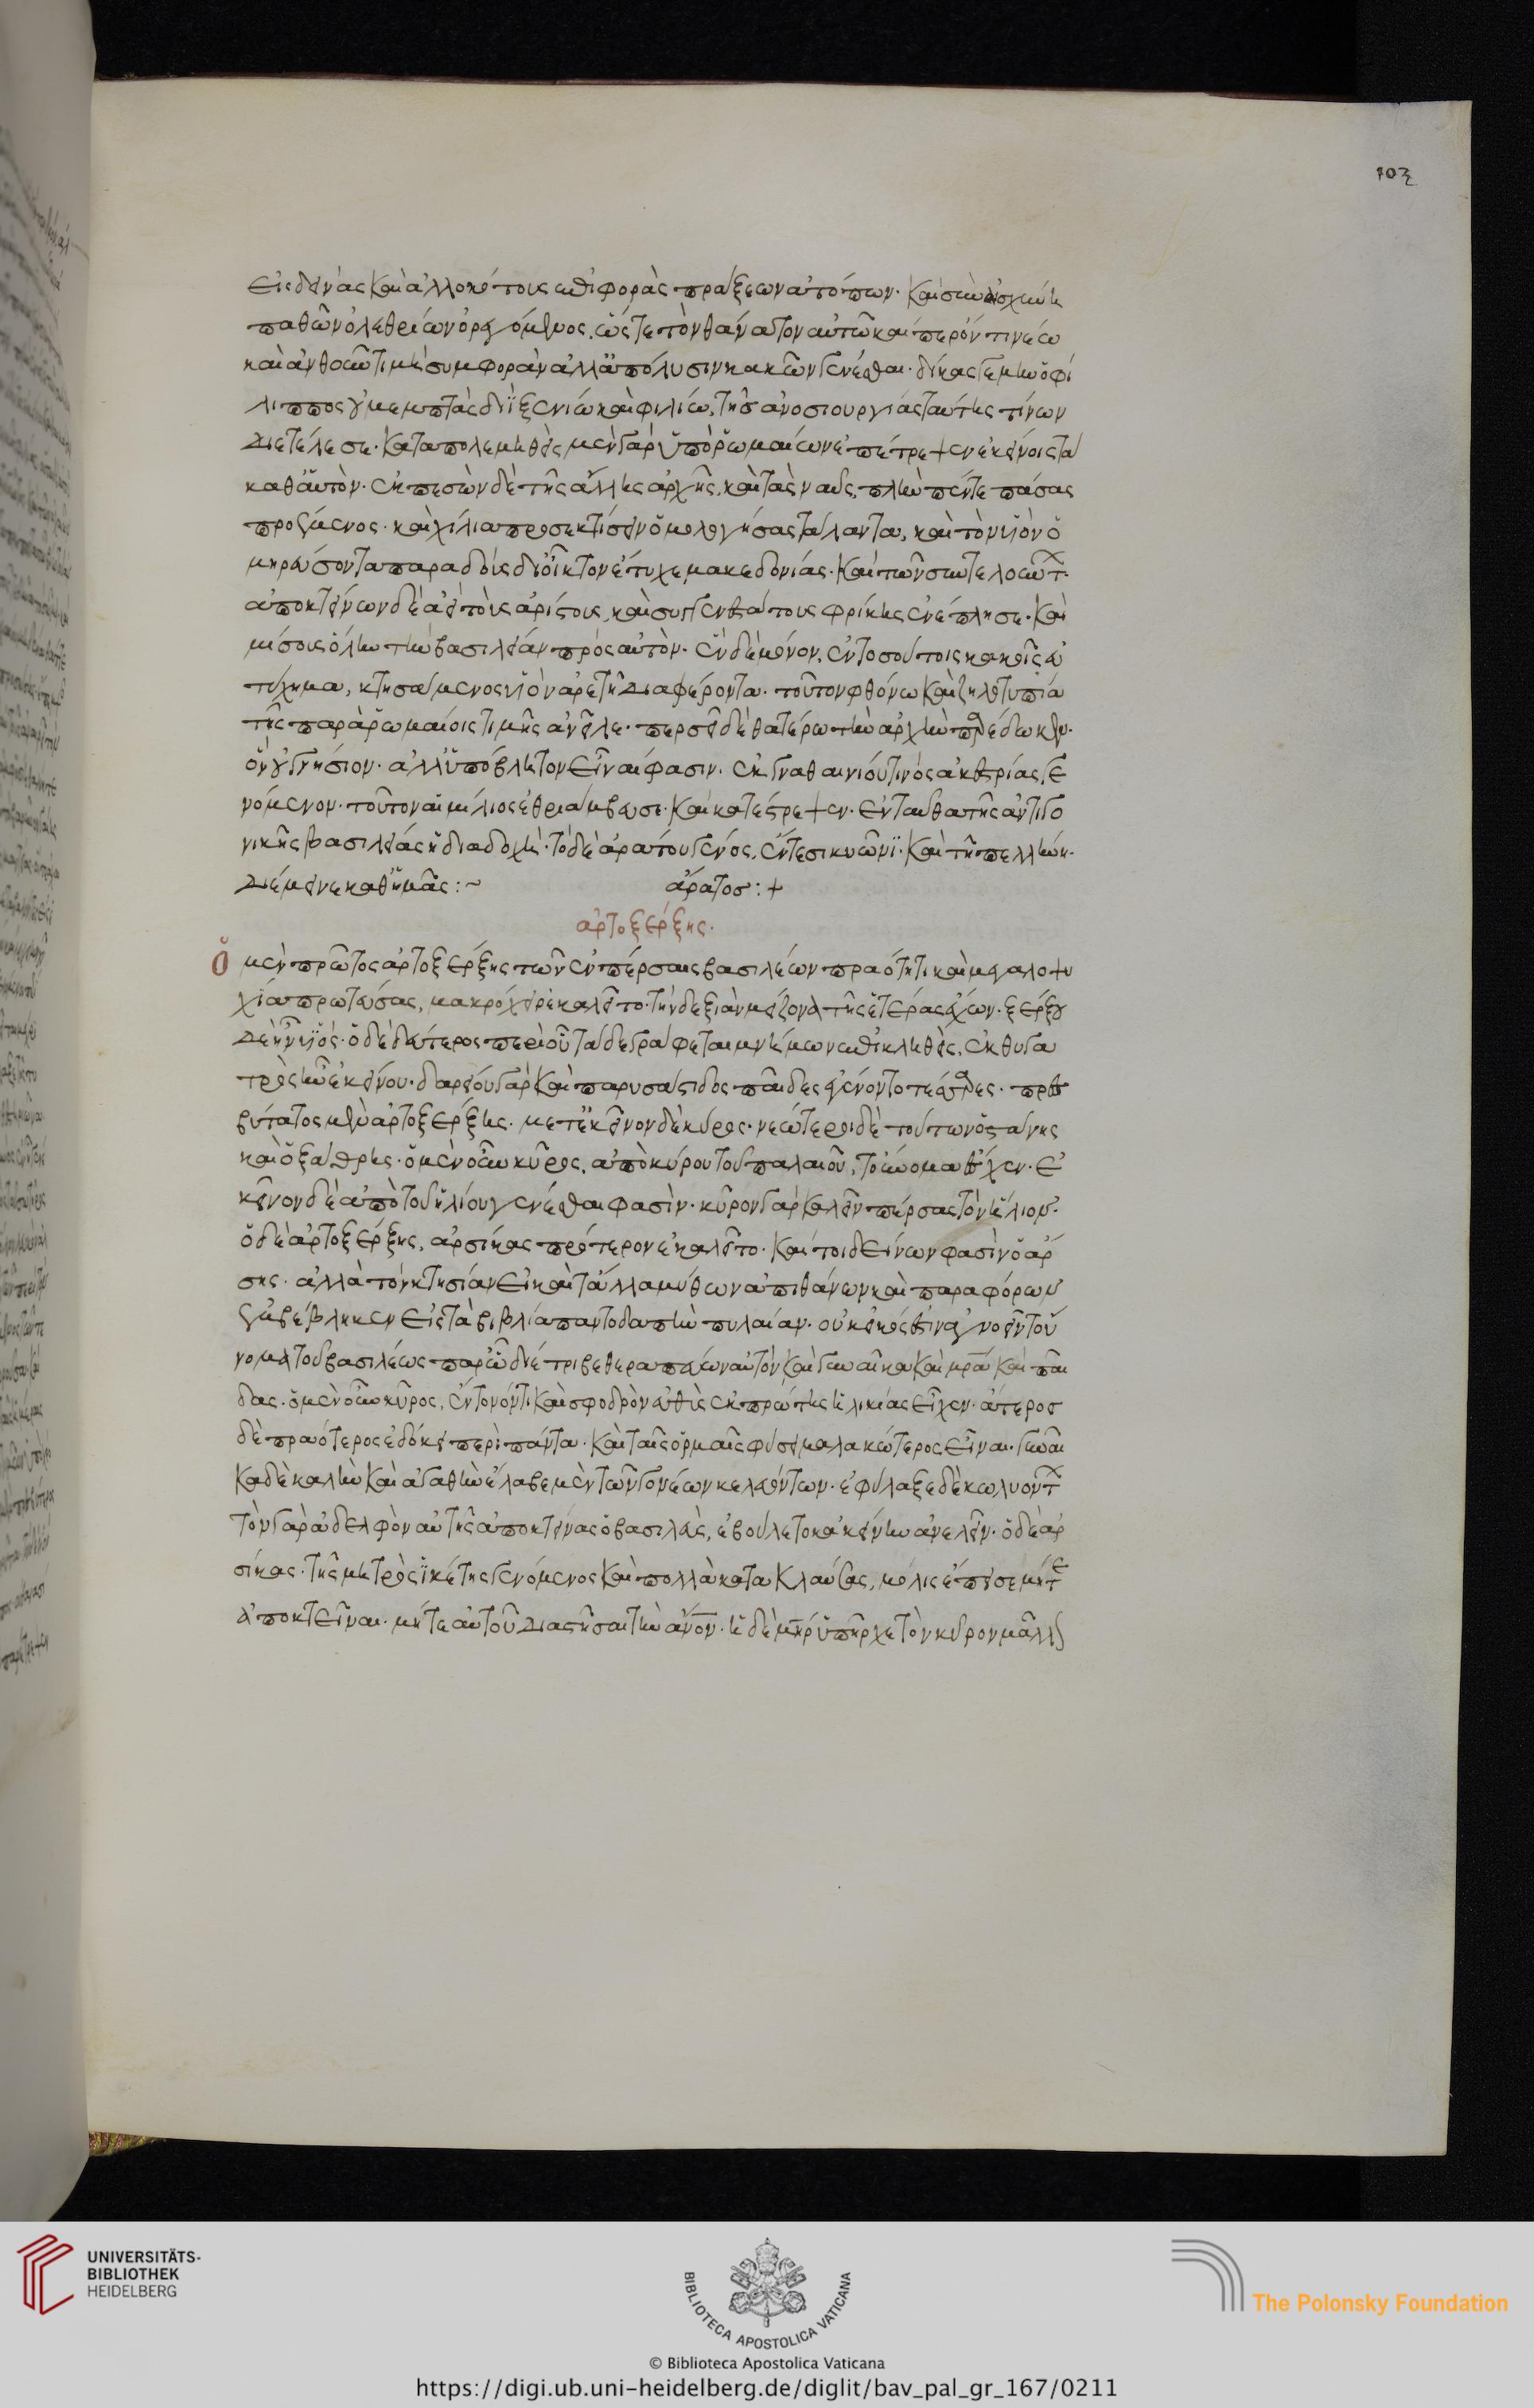 103
εἰς δεινὰς καὶ ἀλλοκότους ἐπιφορὰς πράξεων ἀτόπων. καὶ σὺν αἰσχύνῃ
παθῶν ὀλεθρίων ὀρεγόμενος. ὥστε τὸν θάνατον αὐτῶ καίπερ ὄντι νέω
καὶ ἀνθοῦντι μὴ συμφορὰν ἀλλ' ἀπόλυσιν κακῶν γενέσθαι. δίκας γε μὴν ὁ φί
λιππος οὐ μεμπτὰς διῒ ξενίω καὶ φιλίω, τῆς ἀνοσιουργίας ταύτης τίνων
διετέλεσε. καταπολεμηθεὶς μὲν γὰρ ὑπὸ ῥωμαίων ἐπέτρεψεν ἐκείνοις τὰ
καθ' αὑτὸν. ἐκπεσὼν δὲ τῆς ἄλλης ἀρχῆς, καὶ τὰς ναῦς, πλὴν πέντε πάσας
προέμενος. καὶ χίλια προσεκτίσειν ὁμολογήσας τάλαντα, καὶ τὸν υἱὸν ὁ
μηρεύσοντα παραδοὺς δι' οἶκτον ἔτυχε μακεδονίας. καὶ τῶν συντελούντ
ἀποκτείνων δὲ ἀεὶ τοὺς ἀρίστους, καὶ συγγενεστάτους φρίκης ἐνέπλησε. καὶ
μίσους ὅλην τὴν βασιλείαν πρὸς αὐτὸν. ἓν δὲ μόνον, ἐν τοσούτοις κακοῖς εὐ
τύχημα, κτησάμενος υἱὸν ἀρετῆ διαφέροντα. τοῦτον φθόνω καὶ ζηλοτυπία
τῆς παρὰ ῥωμαίοις τιμῆς ἀνεῖλε. περσεῖ δὲ θατέρω τὴν ἀρχὴν παρέδωκεν.
ὃν οὐ γνήσιον. ἀλλ' ὑπόβλητον εἶναί φασιν. ἐκ γναθαινίου τινὸς ἀκεστρίας γε
νόμενον. τοῦτον αἰμίλιος ἐθριάμβευσε. καὶ κατέστρεψεν. ἐνταῦθα τῆς ἀντιγο
νικῆς βασιλείας ἡ διαδοχὴ. τὸ δὲ ἀράτου γένος, ἔν τε σικυῶνι. καὶ τῆ πελλήνη.
διέμεινε καθ' ἡμᾶς :~ ἄρατος :+
ἀρτοξέρξης.
ὁ μὲν πρῶτος ἀρτοξέρξης τῶν ἐν πέρσαις βασιλέων πραότητι καὶ μεγαλοψυ
χία πρωτεύσας, μακρόχειρ ἐκαλεῖτο. τὴν δεξιὰν μείζονα τῆς ἑτέρας ἔχων. ξέρξου
δὲ ἦν υἱός. ὁ δὲ δεύτερος περὶ οὗ τάδε γράφεται μνήμων ἐπικληθεὶς, ἐκ θυγα
τρὸς ἦν ἐκείνου. δαρείου γὰρ καὶ παρυσάτιδος παῖδες ἐγένοντο τέσσαρες. πρεσ
βύτατος μὲν ἀρτοξέρξης. μετ' ἐκεῖνον δὲ κῦρος. νεώτεροι δὲ τούτων ὀστάνης
καὶ ὀξάθρης. ὁ μὲν οὖν κῦρος, ἀπὸ κύρου τοῦ παλαιοῦ, τοὔνομα ἔσχεν. ἐ
κεῖνον δὲ ἀπὸ τοῦ ἡλίου γενέσθαι φασὶν. κῦρον γὰρ καλεῖν πέρσας τὸν ἥλιον.
ὁ δὲ ἀρτοξέρξης, ἀρσίκας πρότερον ἐκαλεῖτο. καίτοι δείνων φασὶν ὀάρ
σης. ἀλλὰ τὸν κτησίαν εἰ καὶ τἄλλα μύθων ἀπιθάνων καὶ παραφόρων
ἐμβέβληκεν εἰς τὰ βιβλία παντοδαπὴν πυλαίαν. οὐκ εἰκός ἐστιν ἀγνοεῖν τοὔ
νομα τοῦ βασιλέως παρ' ὧ διέτριβε θεραπεύων αὐτὸν καὶ γυναῖκα καὶ μρα καὶ παῖ
δας. ὁ μὲν οὖν κῦρος, ἔντονόν τι καὶ σφοδρὸν εὐθὺς ἐκ πρώτης ἡλικίας εἶχεν. ἅτερος
δὲ πραότερος ἐδόκει περὶ πάντα. καὶ ταῖς ὁρμαῖς φύσει μαλακώτερος εἶναι. γυναῖ
κα δὲ καλὴν καὶ ἀγαθὴν ἔλαβε μὲν τῶν γονέων κελευόντων. ἐφύλαξε δὲ κωλυόντ
τὸν γὰρ ἀδελφὸν αὐτῆς ἀποκτείνας ὁ βασιλεὺς, ἐβούλετο κἀκείνην ἀνελεῖν. ὁ δὲ ἀρ
σίκας. τῆς μητρὸς ἱκέτης γενόμενος καὶ πολλὰ κατακλαύσας, μόλις ἔπεισε μήτε
ἀποκτεῖναι. μήτε αὐτοῦ διαστῆσαι τὴν ἄνον. ἡ δὲ μηρ ὑπῆρχε τὸν κῦρον μᾶλλ
UNIVERSITÄTS-
BIBLIOTHEK
HEIDELBERG
BIBLIOTECA APOSTOLICA VATICANA
The Polonsky Foundation
© Biblioteca Apostolica Vaticana
https://digi.ub.uni-heidelberg.de/diglit/bav_pal_gr_167/0211